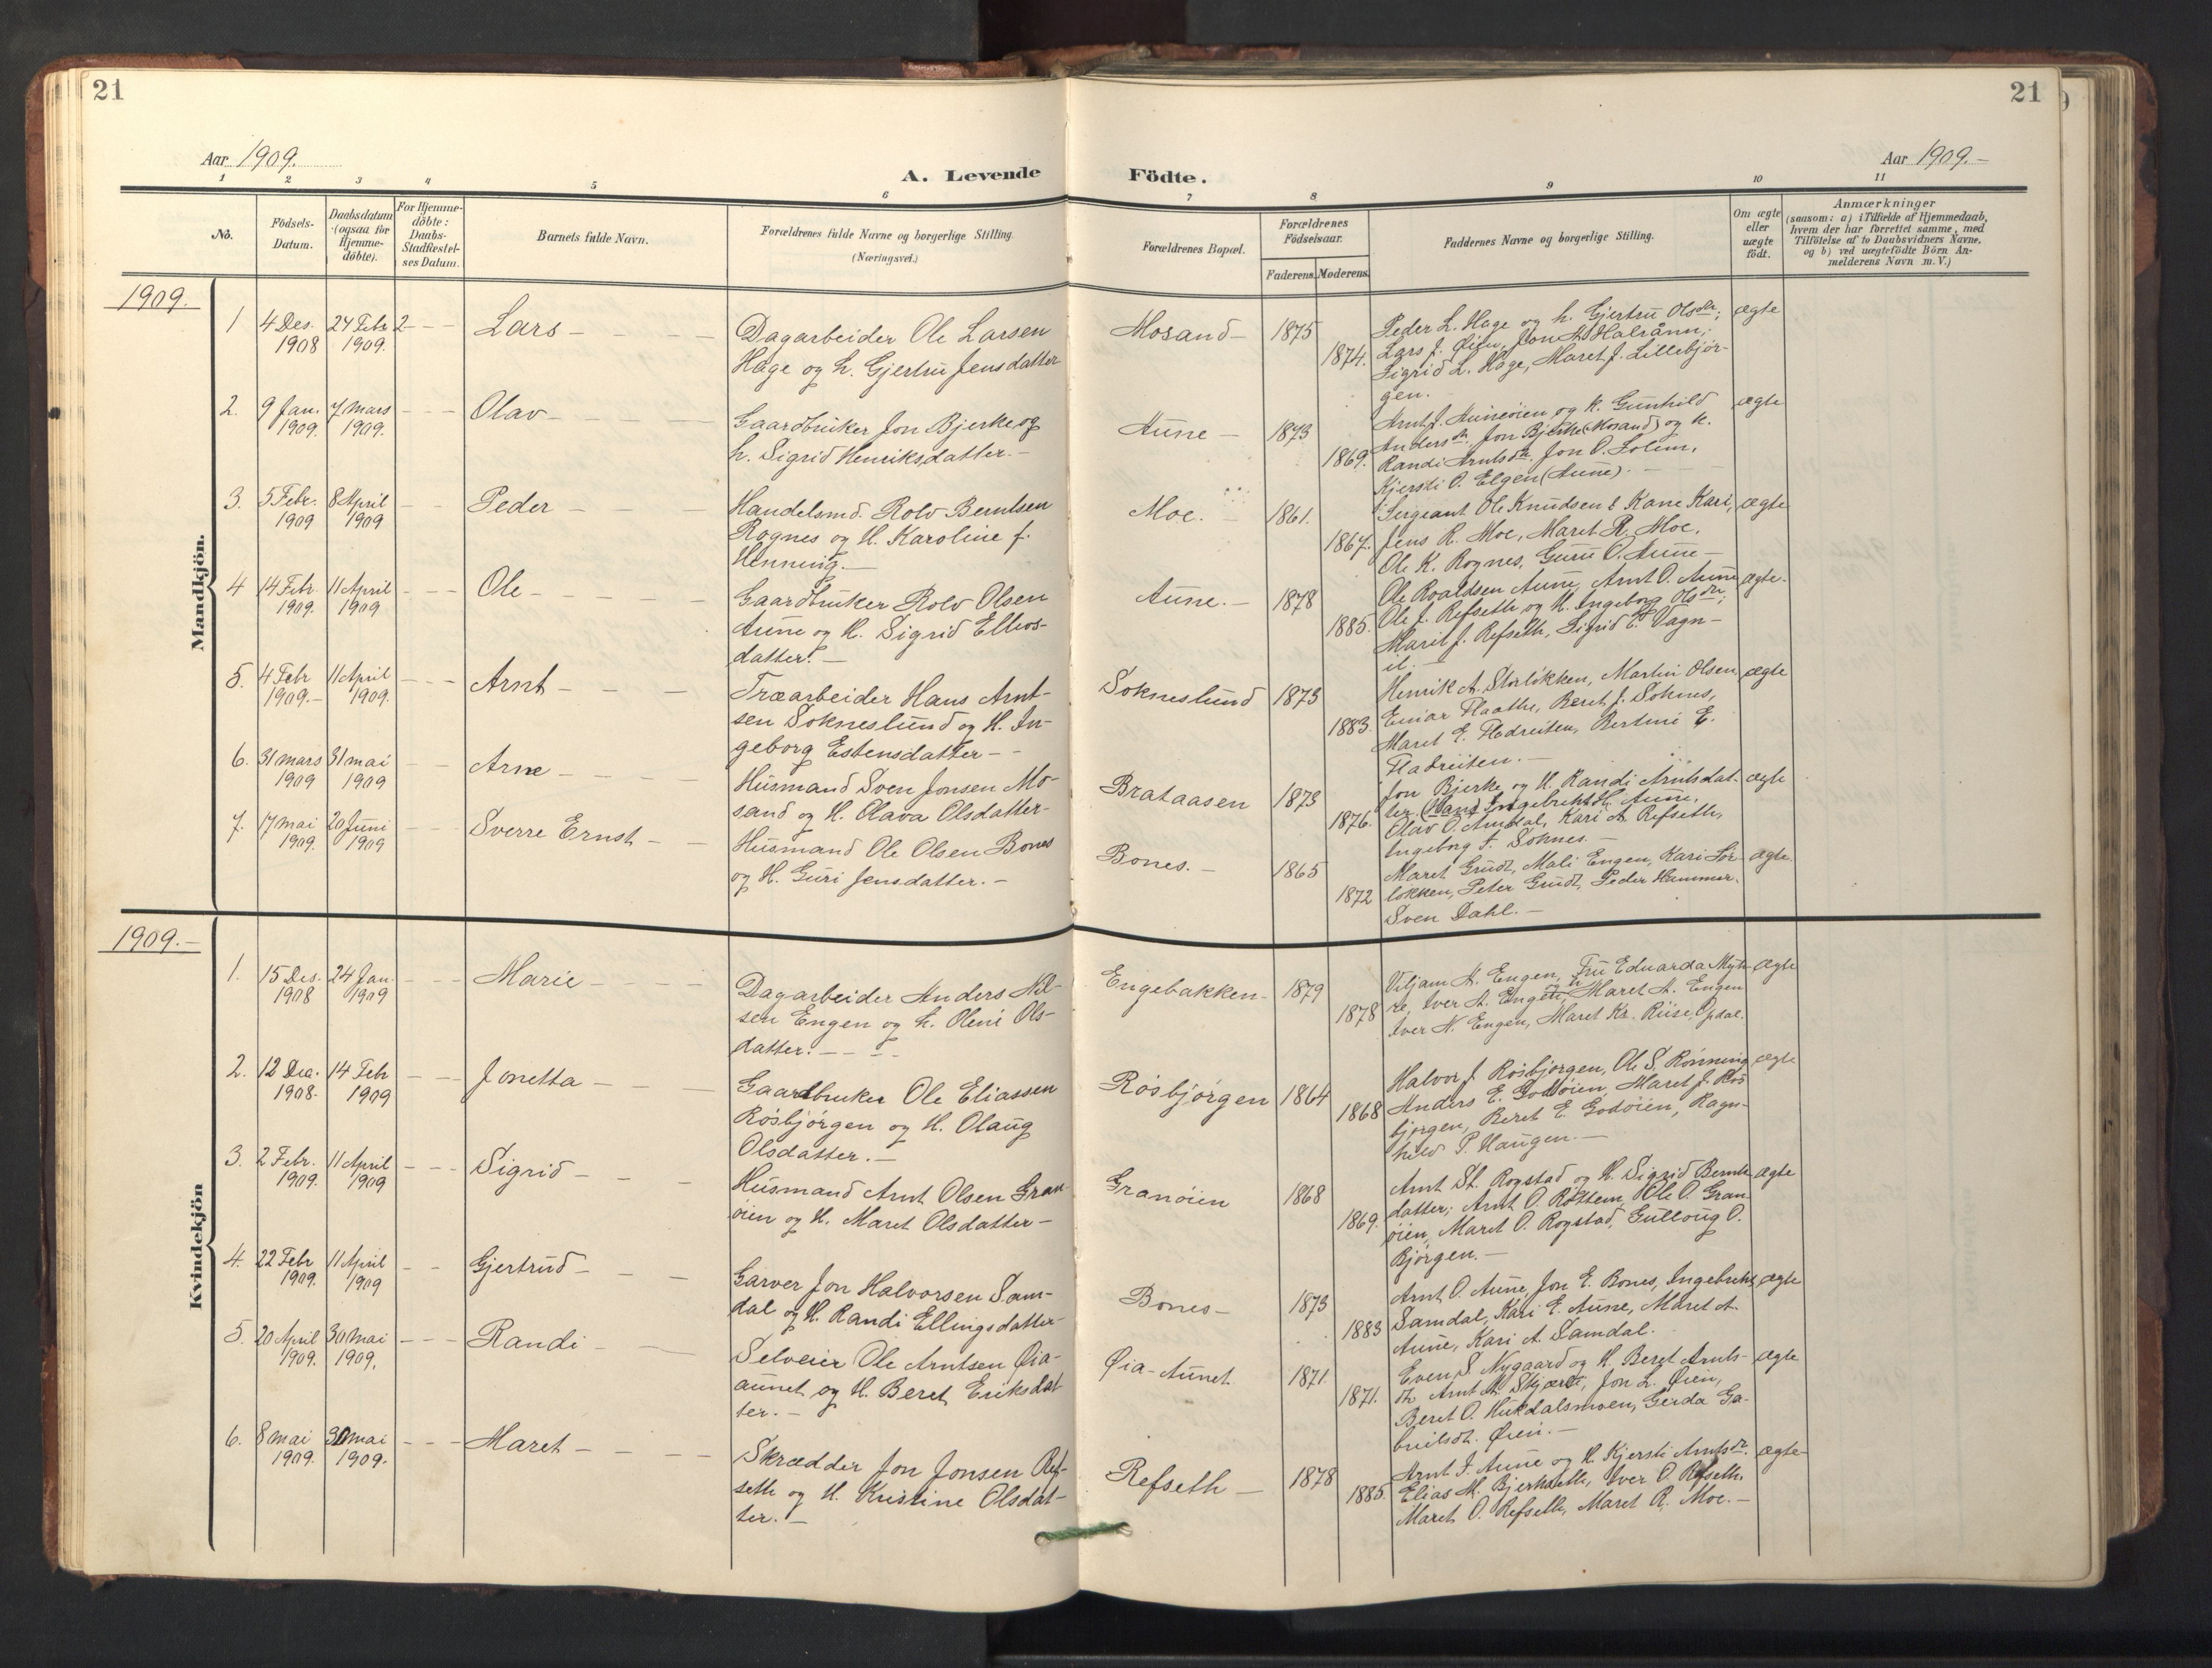 21
21
Aar 1909.
Aar 1909.—
A. Levende
Födte.
1 2 3 4 5 6
7 8 9 10 11
No.
Födsels-
Datum.
Daabsdatum
(ogsaa for
Hjemme-
döbte).
For Hjemme-
döbte:
Daabs-
Stadfæstel-
ses Datum.
Barnets fulde Navn.
Forældrenes fulde Navne og borgerlige Stilling.
(Næringsvei.)
Forældrenes Bopæl.
Forældrenes
Födselsaar.
Faderens.
Moderens.
Faddernes Navne og borgerlige Stilling.
Om ægte
eller
uægte
födt.
Anmærkninger
(saasom: a) i Tilfælde af Hjemmedaab,
hvem der har forrettet samme, med
Tilföielse af to Daabsvidners Navne,
og b) ved uægtefödte Börn An-
melderens Navn m. V.)
1909.
Mandkjön.
1 4 Des. 24 Febr. 2 — — Lars — — — —
1908 1909.
Dagarbeider Ole Larsen
Hage og h. Gjertru Jensdatter
Mosand — 1875
1874.
Peder L. Hage og h. Gjertru Olsdr.;
Lars J. Øien, Jon A. Halrånn;
Sigrid L. Hage, Maret J. Lillebjör-
gen.
ægte
2. 9 Jan. 7 Mars — — — Olav — — — —
1909. 1909.
Gaardbruker Jon Bjerke og
h. Sigrid Henriksdatter. —
Aune — 1873
1869.
Arnt J. Auneøien og k. Gunhild
Andersdr. Jon Bjerke (Mosand) og k.
Randi Arntsdr. Jon O. Solem,
Kjersti O. Elgen (Aune). —
ægte
3. 5 Febr. 8 April — — Peder — — —
1909 1909
Handelsmd. Rolv Berntsen
Rognes og H. Karoline f.
Henning. —
Moe. — 1861.
1867.
Sergeant Ole Knudsen & Kone Kari,
Jens R. Moe, Maret R. Moe,
Ole K. Rognes, Guru O. Aune —
ægte
4 14 Febr. 11 April — — — Ole — — — — —
1909. 1909
Gaardbruker Rolv Olsen
Aune og H. Sigrid Ellevs-
datter. —
Aune. — 1878
1885.
Ole Roaldsen Aune, Arnt O. Aune
Ole J. Refseth og H. Ingeborg Olsdr.;
Marit J. Refseth, Sigrid E. Vagn-
il. —
ægte.
5. 4 Febr 11 April — — — Arnt — — —
1909.— 1909.
Træarbeider Hans Arnt-
sen Sokneslund og H. In-
geborg Estensdatter — —
Sokneslund 1873
1883.
Henrik A. Storløkken, Martin Olsen,
Einar Flaathe, Beret J. Soknes,
Maret E. Fladreiten, Bertini E.
Fladreiten. —
ægte
6. 31 mars 31 mai — — Arne — — — —
1909 1909
Husmand Sven Jonsen Mo-
sand og H. Olava Olsdatter —
Brataasen 1873
1876.
Jon Bjerke og H. Randi Arntsdat-
ter, Ingebrigt H. Aune,
Olav O. Amdal, Kari A. Refseth,
Ingeborg T. Soknes. —
ægte
7. 17 mai 20 Juni — — Sverre Ernst — —
1909. 1909
Husmand Ole Olsen Bones
og H. Guri Jensdatter. —
Bones. — 1865
1872
Maret Grudt, Mali Engen, Kari Sör-
løkken, Peter Grudt, Peder Hammer,
Sven Dahl. —
ægte.
1909.—
Kvindekjön
1. 15 Des. 24 Jan. — — — Marie — — — —
1908 1909
Dagarbeider Anders Nil-
sen Engen og h. Oleni Ols-
datter. — — —
Engebakken — 1879
1878
Viljam N. Engen, Fru Eduarda Myh-
re, Iver A. Engen, og h. Maret A. Engen
Iver N. Engen, Maret Kr. Riise, Opdal.
ægte
2. 12 Des. 14 Feb — — Jonetta — — —
1908. 1909
Gaardbruker Ole Eliassen
Røsbjørgen og H. Olaug
Olsdatter. —
Røsbjørgen 1864
1868
Halvor J. Røsbjørgen, Ole S. Rønning
Anders E. Godøien, Maret J. Røs
bjørgen, Beret E. Godøien, Ragn-
hild P. Haugen. —
ægte
3. 2 Febr. 11 April — — — Sigrid — — —
1909. 1909
Husmand Arnt Olsen Gran
øien og H. Maret Olsdatter —
Granøien 1868
1869.
Arnt St. Rogstad og H. Sigrid Bernts-
datter; Arnt O. Røttem, Ole O. Gran
øien, Maret O. Rogstad, Gulloug O.
Bjørgen. —
ægte
4. 22 Febr 11 April — — Gjertrud — — —
1909. 1909
Garver Jon Halvorsen Sam-
dal og H. Randi Ellingsdatter —
Bones — 1873
1883
Arnt O. Aune, Jon E. Bones, Ingebrikt
Samdal, Kari E. Aune, Maret A.
Aune, Kari A. Samdal.
ægte
5. 20 April 30 Mai — — — Randi — — —
1909. 1909.
Selveier Ole Arntsen Øia-
aunet og H. Beret Eriksdat
ter. —
Øia-Aunet 1871.
1871.
Even S. Nygaard og H. Beret Arnts-
dr. Arnt A. Skjærli, Jon L. Øien,
Beret O. Hukdalsmoen, Gerda Ga-
brilsdt. Øien. —
ægte
6. 8 mai 30 mai — — — Maret — — — —
1909. 1909.
Skrædder Jon Jonsen Ref-
seth og H. Kristine Olsdat-
ter. —
Refseth — 1878
1885.
Arnt J. Aune og H. Kjersti Arntsdr.
Elias M. Bjerkseth, Iver O. Refseth,
Maret O. Refseth, Maret R. Moe. —
ægte